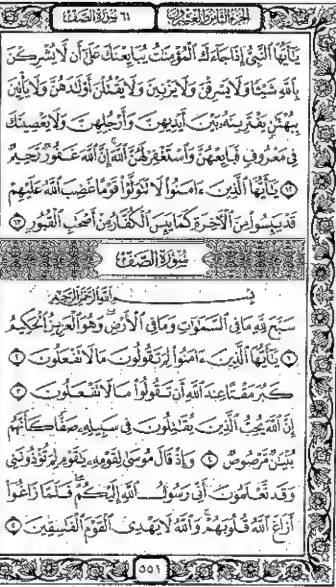 الجزء الثامن والعشرون
٦١ سورة الصف
يَٰٓأَيُّهَا ٱلنَّبِيُّ إِذَا جَآءَكَ ٱلْمُؤْمِنَٰتُ يُبَايِعْنَكَ عَلَىٰٓ أَن لَّا يُشْرِكْنَ
بِٱللَّهِ شَيْـًٔا وَلَا يَسْرِقْنَ وَلَا يَزْنِينَ وَلَا يَقْتُلْنَ أَوْلَٰدَهُنَّ وَلَا يَأْتِينَ
بِبُهْتَٰنٍ يَفْتَرِينَهُۥ بَيْنَ أَيْدِيهِنَّ وَأَرْجُلِهِنَّ وَلَا يَعْصِينَكَ
فِى مَعْرُوفٍ فَبَايِعْهُنَّ وَٱسْتَغْفِرْ لَهُنَّ ٱللَّهَ إِنَّ ٱللَّهَ غَفُورٌ رَّحِيمٌ
١٢ يَٰٓأَيُّهَا ٱلَّذِينَ ءَامَنُوا۟ لَا تَتَوَلَّوْا۟ قَوْمًا غَضِبَ ٱللَّهُ عَلَيْهِمْ
قَدْ يَئِسُوا۟ مِنَ ٱلْءَاخِرَةِ كَمَا يَئِسَ ٱلْكُفَّارُ مِنْ أَصْحَٰبِ ٱلْقُبُورِ ١٣
سورة الصف
بِسْمِ ٱللَّهِ ٱلرَّحْمَٰنِ ٱلرَّحِيمِ
سَبَّحَ لِلَّهِ مَا فِى ٱلسَّمَٰوَٰتِ وَمَا فِى ٱلْأَرْضِ وَهُوَ ٱلْعَزِيزُ ٱلْحَكِيمُ
١ يَٰٓأَيُّهَا ٱلَّذِينَ ءَامَنُوا۟ لِمَ تَقُولُونَ مَا لَا تَفْعَلُونَ ٢
كَبُرَ مَقْتًا عِندَ ٱللَّهِ أَن تَقُولُوا۟ مَا لَا تَفْعَلُونَ ٣
إِنَّ ٱللَّهَ يُحِبُّ ٱلَّذِينَ يُقَٰتِلُونَ فِى سَبِيلِهِۦ صَفًّا كَأَنَّهُم
بُنْيَٰنٌ مَّرْصُوصٌ ٤ وَإِذْ قَالَ مُوسَىٰ لِقَوْمِهِۦ يَٰقَوْمِ لِمَ تُؤْذُونَنِى
وَقَد تَّعْلَمُونَ أَنِّى رَسُولُ ٱللَّهِ إِلَيْكُمْ فَلَمَّا زَاغُوٓا۟
أَزَاغَ ٱللَّهُ قُلُوبَهُمْ وَٱللَّهُ لَا يَهْدِى ٱلْقَوْمَ ٱلْفَٰسِقِينَ ٥
٥٥١